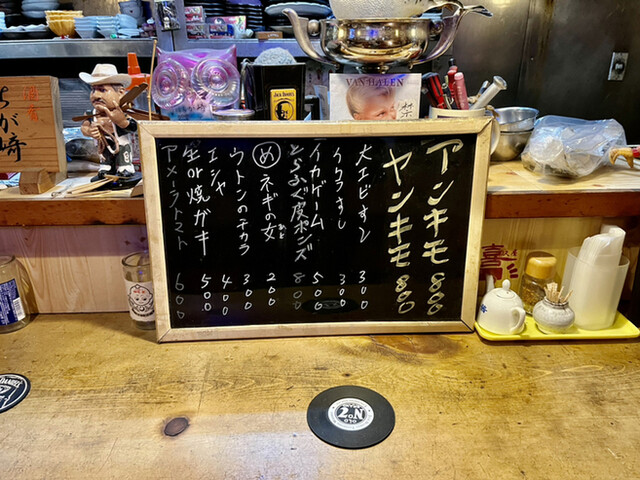 アンキモ 800
ヤンキモ 800
大エビオジン 300
イクラオロシ 300
イカゲーム 500
とらふぐ皮ポンズ 800
め ネギの女 200
ウトンのチカラ 300
エシャ 400
生or焼ガキ 500
アメーラトマト 600
VAN HALEN
が崎
JACK DANIEL'S
DANIEL'S
OLD
Nº7